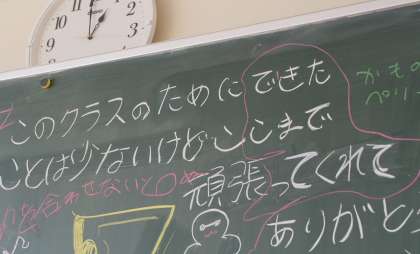 このクラスのためにできた
ことは少ないけどここまで
頑張ってくれて
ありがと
がもの
ペリ
合わせないと
12
1
2
3
4
5
6
7
8
9